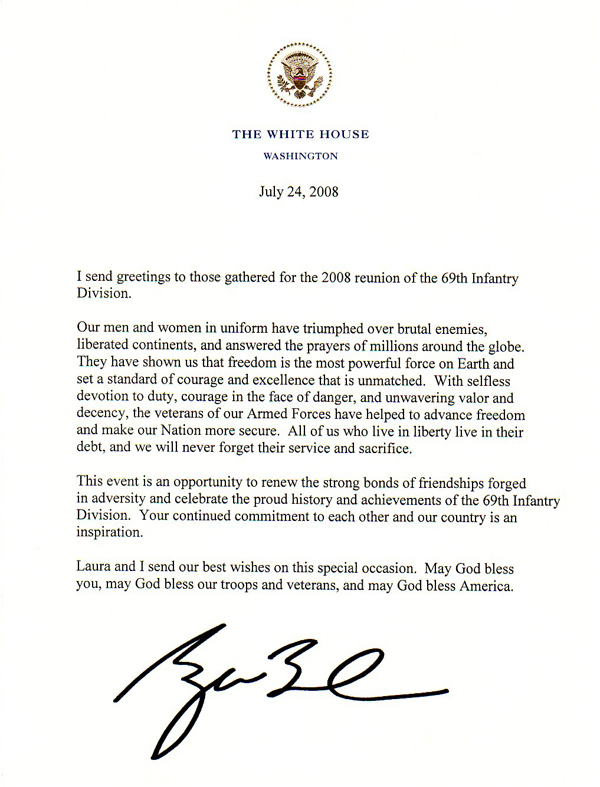 THE WHITE HOUSE
WASHINGTON
July 24, 2008
I send greetings to those gathered for the 2008 reunion of the 69th Infantry
Division.
Our men and women in uniform have triumphed over brutal enemies,
liberated continents, and answered the prayers of millions around the globe.
They have shown us that freedom is the most powerful force on Earth and
set a standard of courage and excellence that is unmatched.  With selfless
devotion to duty, courage in the face of danger, and unwavering valor and
decency, the veterans of our Armed Forces have helped to advance freedom
and make our Nation more secure.  All of us who live in liberty live in their
debt, and we will never forget their service and sacrifice.
This event is an opportunity to renew the strong bonds of friendships forged
in adversity and celebrate the proud history and achievements of the 69th Infantry
Division.  Your continued commitment to each other and our country is an
inspiration.
Laura and I send our best wishes on this special occasion.  May God bless
you, may God bless our troops and veterans, and may God bless America.